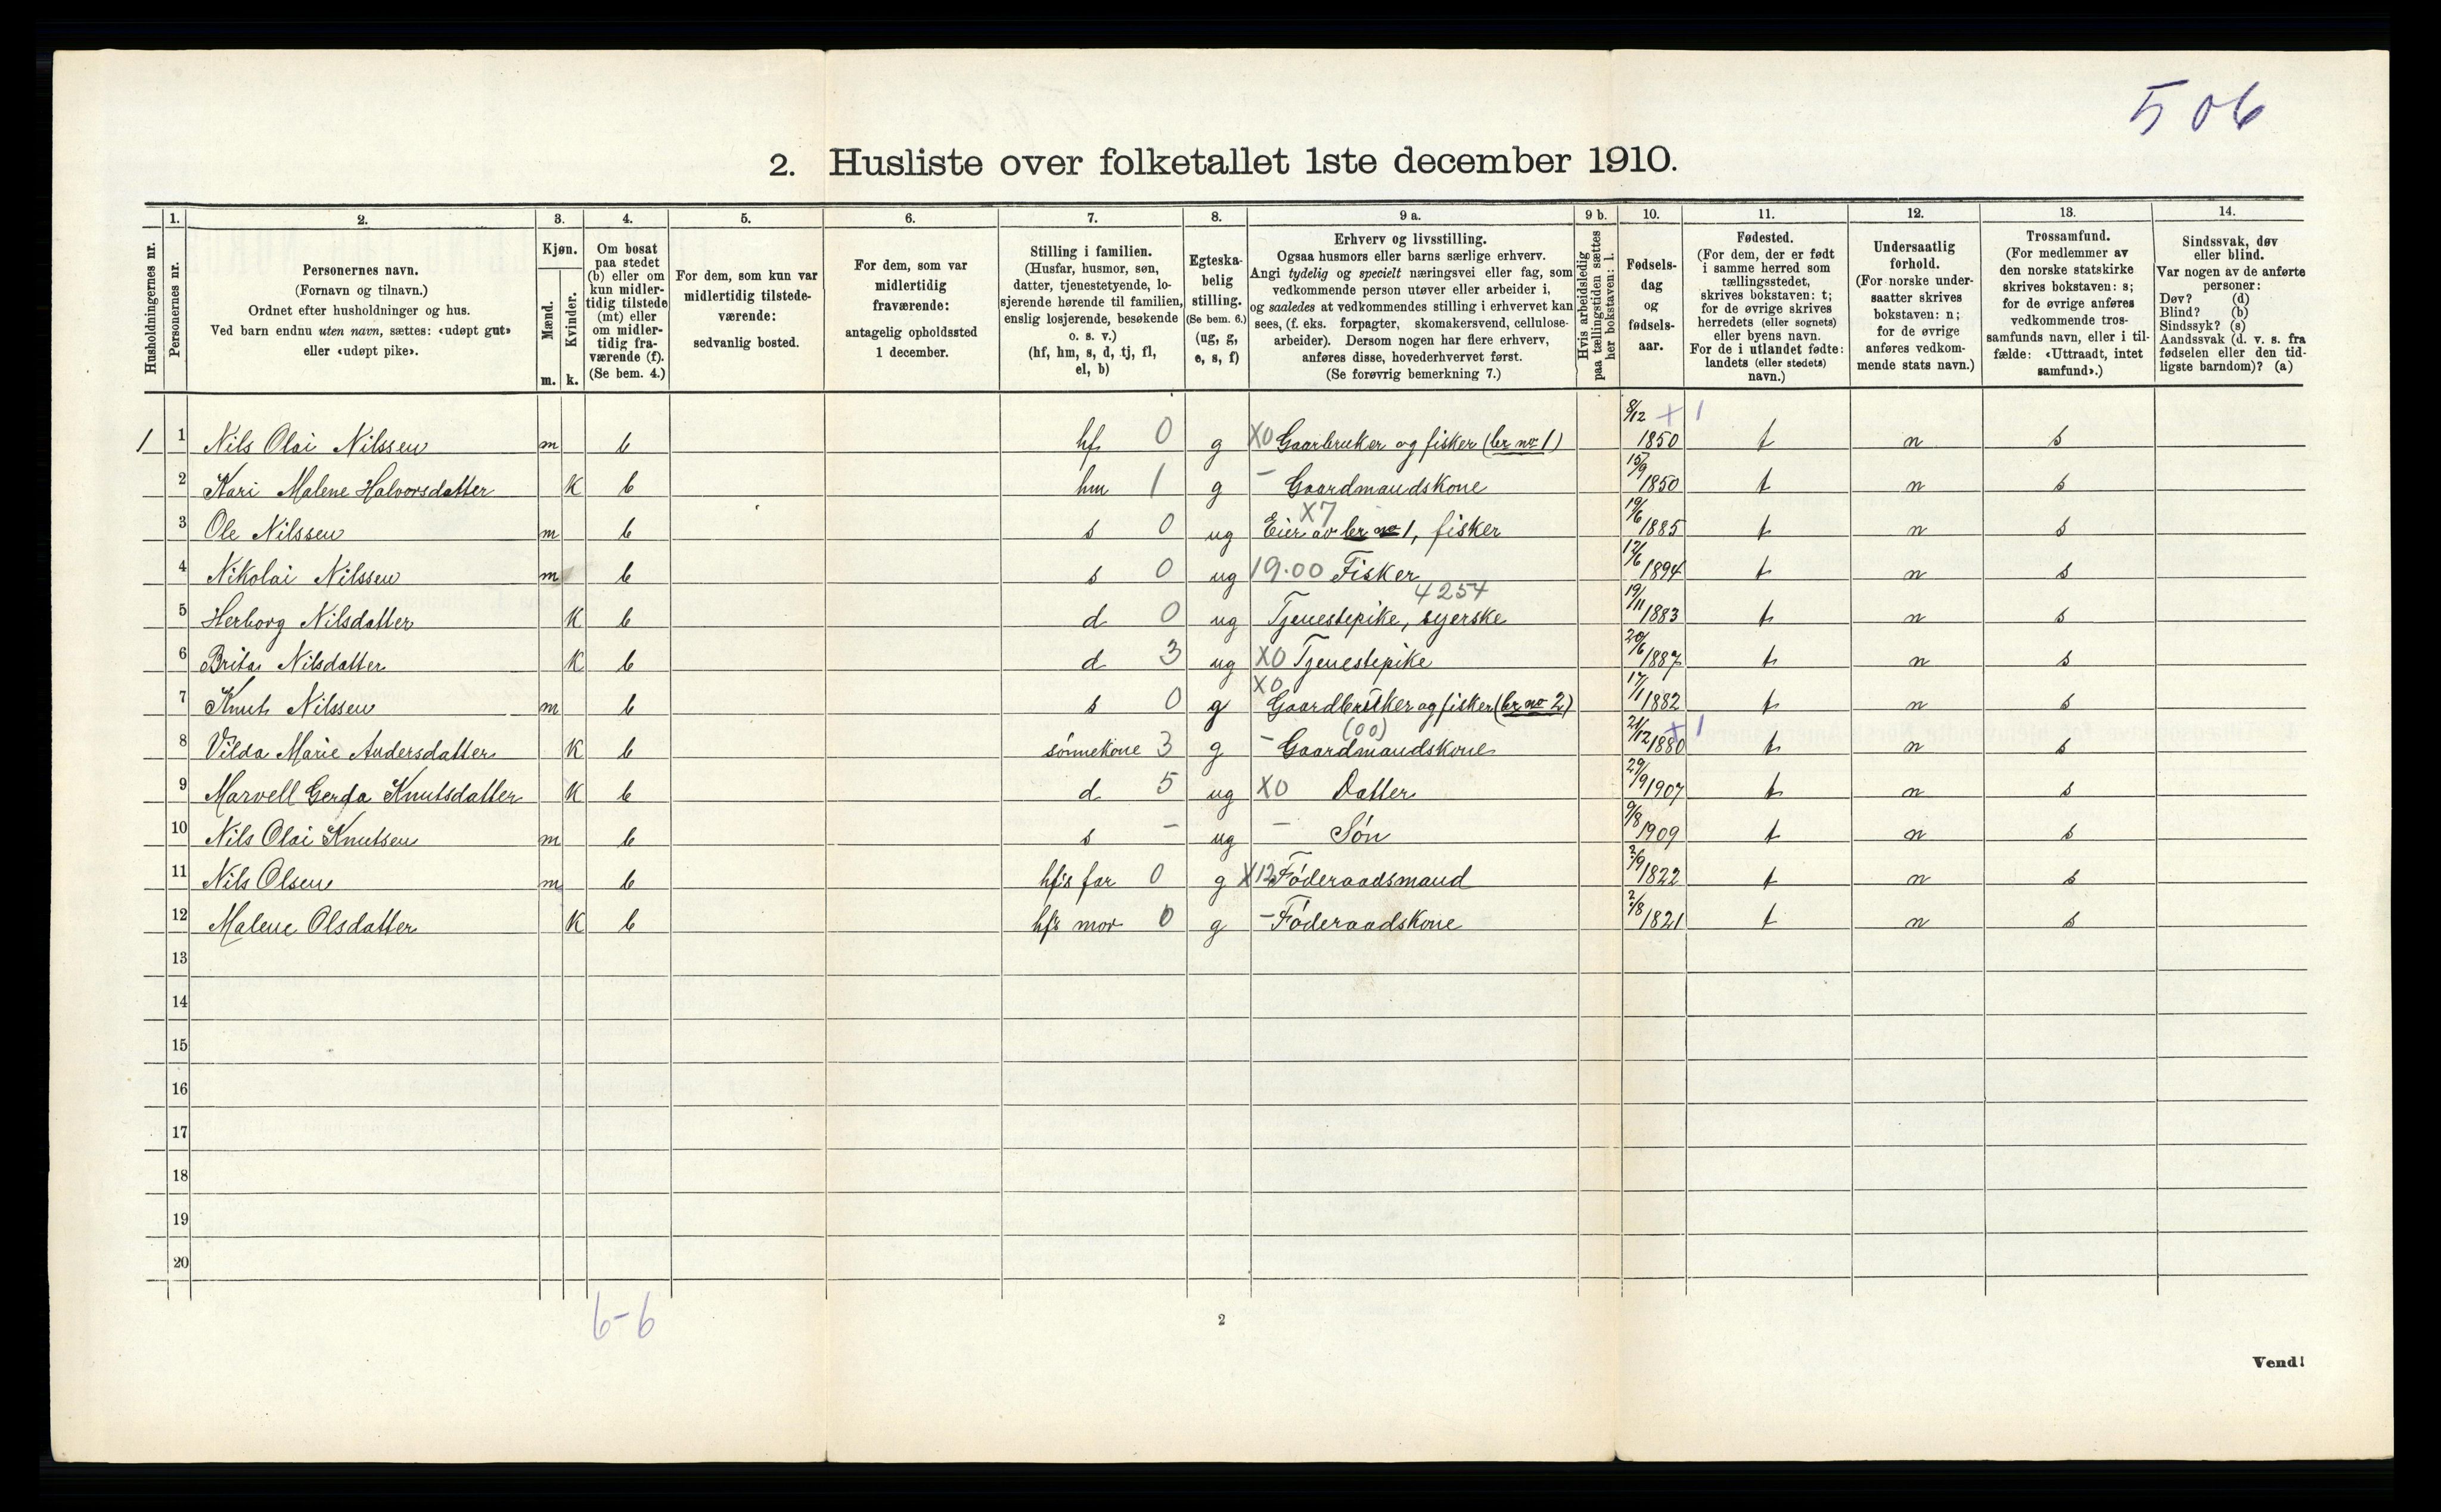 506
2. Husliste over folketallet 1ste december 1910.
Husholdningernes nr.
1.
Personernes nr.
2.
Personernes navn.
(Fornavn og tilnavn.)
Ordnet efter husholdninger og hus.
Ved barn endnu uten navn, sættes: «udøpt gut»
eller «udøpt pike».
3.
Kjøn.
Mænd.
Kvinder.
m. k.
4.
Om bosat
paa stedet
(b) eller om
kun midler-
tidig tilstede
(mt) eller
om midler-
tidig fra-
værende (f).
(Se bem. 4.)
5.
For dem, som kun var
midlertidig tilstede-
værende:
sedvanlig bosted.
6.
For dem, som var
midlertidig
fraværende:
antagelig opholdssted
1 december.
7.
Stilling i familien.
(Husfar, husmor, søn,
datter, tjenestetyende, lo-
sjerende hørende til familien,
enslig losjerende, besøkende
o. s. v.)
(hf, hm, s, d, tj, fl,
el, b)
8.
Egteska-
belig
stilling.
(Se bem. 6.)
(ug, g,
e, s, f)
9 a.
Erhverv og livsstilling.
Ogsaa husmors eller barns særlige erhverv.
Angi tydelig og specielt næringsvei eller fag, som
vedkommende person utøver eller arbeider i,
og saaledes at vedkommendes stilling i erhvervet kan
sees, (f. eks. forpagter, skomakersvend, cellulose-
arbeider). Dersom nogen har flere erhverv,
anføres disse, hovederhvervet først.
(Se forøvrig bemerkning 7.)
9 b.
Hvis arbeidsledig
paa tællingstiden sættes
her bokstaven: l.
10.
Fødsels-
dag
og
fødsels-
aar.
11.
Fødested.
(For dem, der er født
i samme herred som
tællingsstedet,
skrives bokstaven: t;
for de øvrige skrives
herredets (eller sognets)
eller byens navn.
For de i utlandet fødte:
landets (eller stedets)
navn.)
12.
Undersaatlig
forhold.
(For norske under-
saatter skrives
bokstaven: n;
for de øvrige
anføres vedkom-
mende stats navn.)
13.
Trossamfund.
(For medlemmer av
den norske statskirke
skrives bokstaven: s;
for de øvrige anføres
vedkommende tros-
samfunds navn, eller i til-
fælde: «Uttraadt, intet
samfund».)
14.
Sindssvak, døv
eller blind.
Var nogen av de anførte
personer:
Døv? (d)
Blind? (b)
Sindssyk? (s)
Aandssvak (d. v. s. fra
fødselen eller den tid-
ligste barndom)? (a)
1 1 Nils Olai Nilssen m b hf 0 g X0 Gaarbruker og fisker (br no 1) 8/12 1850 + 1 t n s
2 Kari Malene Halvorsdatter K b hm 1 g – Gaardmandskone 15/9 1850 t n s
3 Ole Nilssen m b s 0 ug X7 Eier av br no 1, fisker 19/6 1885 t n s
4 Nikolai Nilssen m b s 0 ug 19.00 Fisker 12/6 1894 t n s
5 Herborg Nilsdatter K b d 0 ug Tjenestepike, syerske 4254 19/11 1883 t n s
6 Brita Nilsdatter K b d 3 ug X0 Tjenestepike 20/6 1887 t n s
7 Knut Nilssen m b s 0 g X0 Gaardbruker og fisker (br no 2) 17/1 1882 t n s
8 Vilda Marie Andersdatter K b sönnekone 3 g – Gaardmandskone (00) 21/12 1880 + 1 t n s
9 Marvell Gerda Knutsdatter K b d 5 ug X0 Datter 29/9 1907 t n s
10 Nils Olai Knutsen m b s – ug – Sön 9/8 1909 t n s
11 Nils Olsen m b hfis far 0 g X12 Föderaadsmand 2/9 1822 t n s
12 Malene Olsdatter K b hfs mor 0 g – Föderaadskone 2/8 1821 t n s
13
14
15
16
17
18
19
20
6-6
2
Vend!